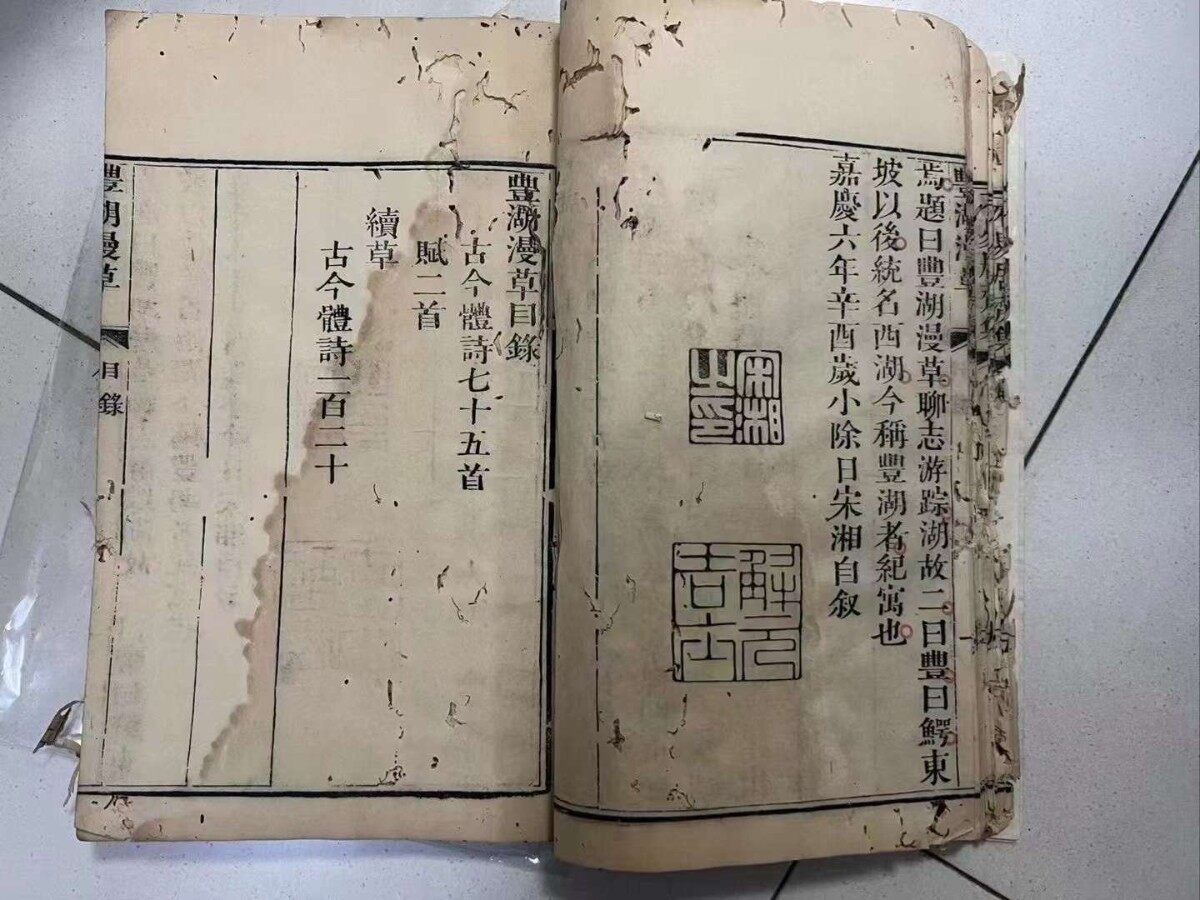 豐湖漫草
焉題曰豐湖漫草聊志游踪湖故二曰豐曰鰐東
坡以後統名西湖今稱豐湖者紀寓也
嘉慶六年辛酉歲小除日宋湘自叙
宋湘之印
解元吉士
豐湖漫草目錄
古今體詩七十五首
賦二首
續草
古今體詩一百二十
豐湖漫草
目錄